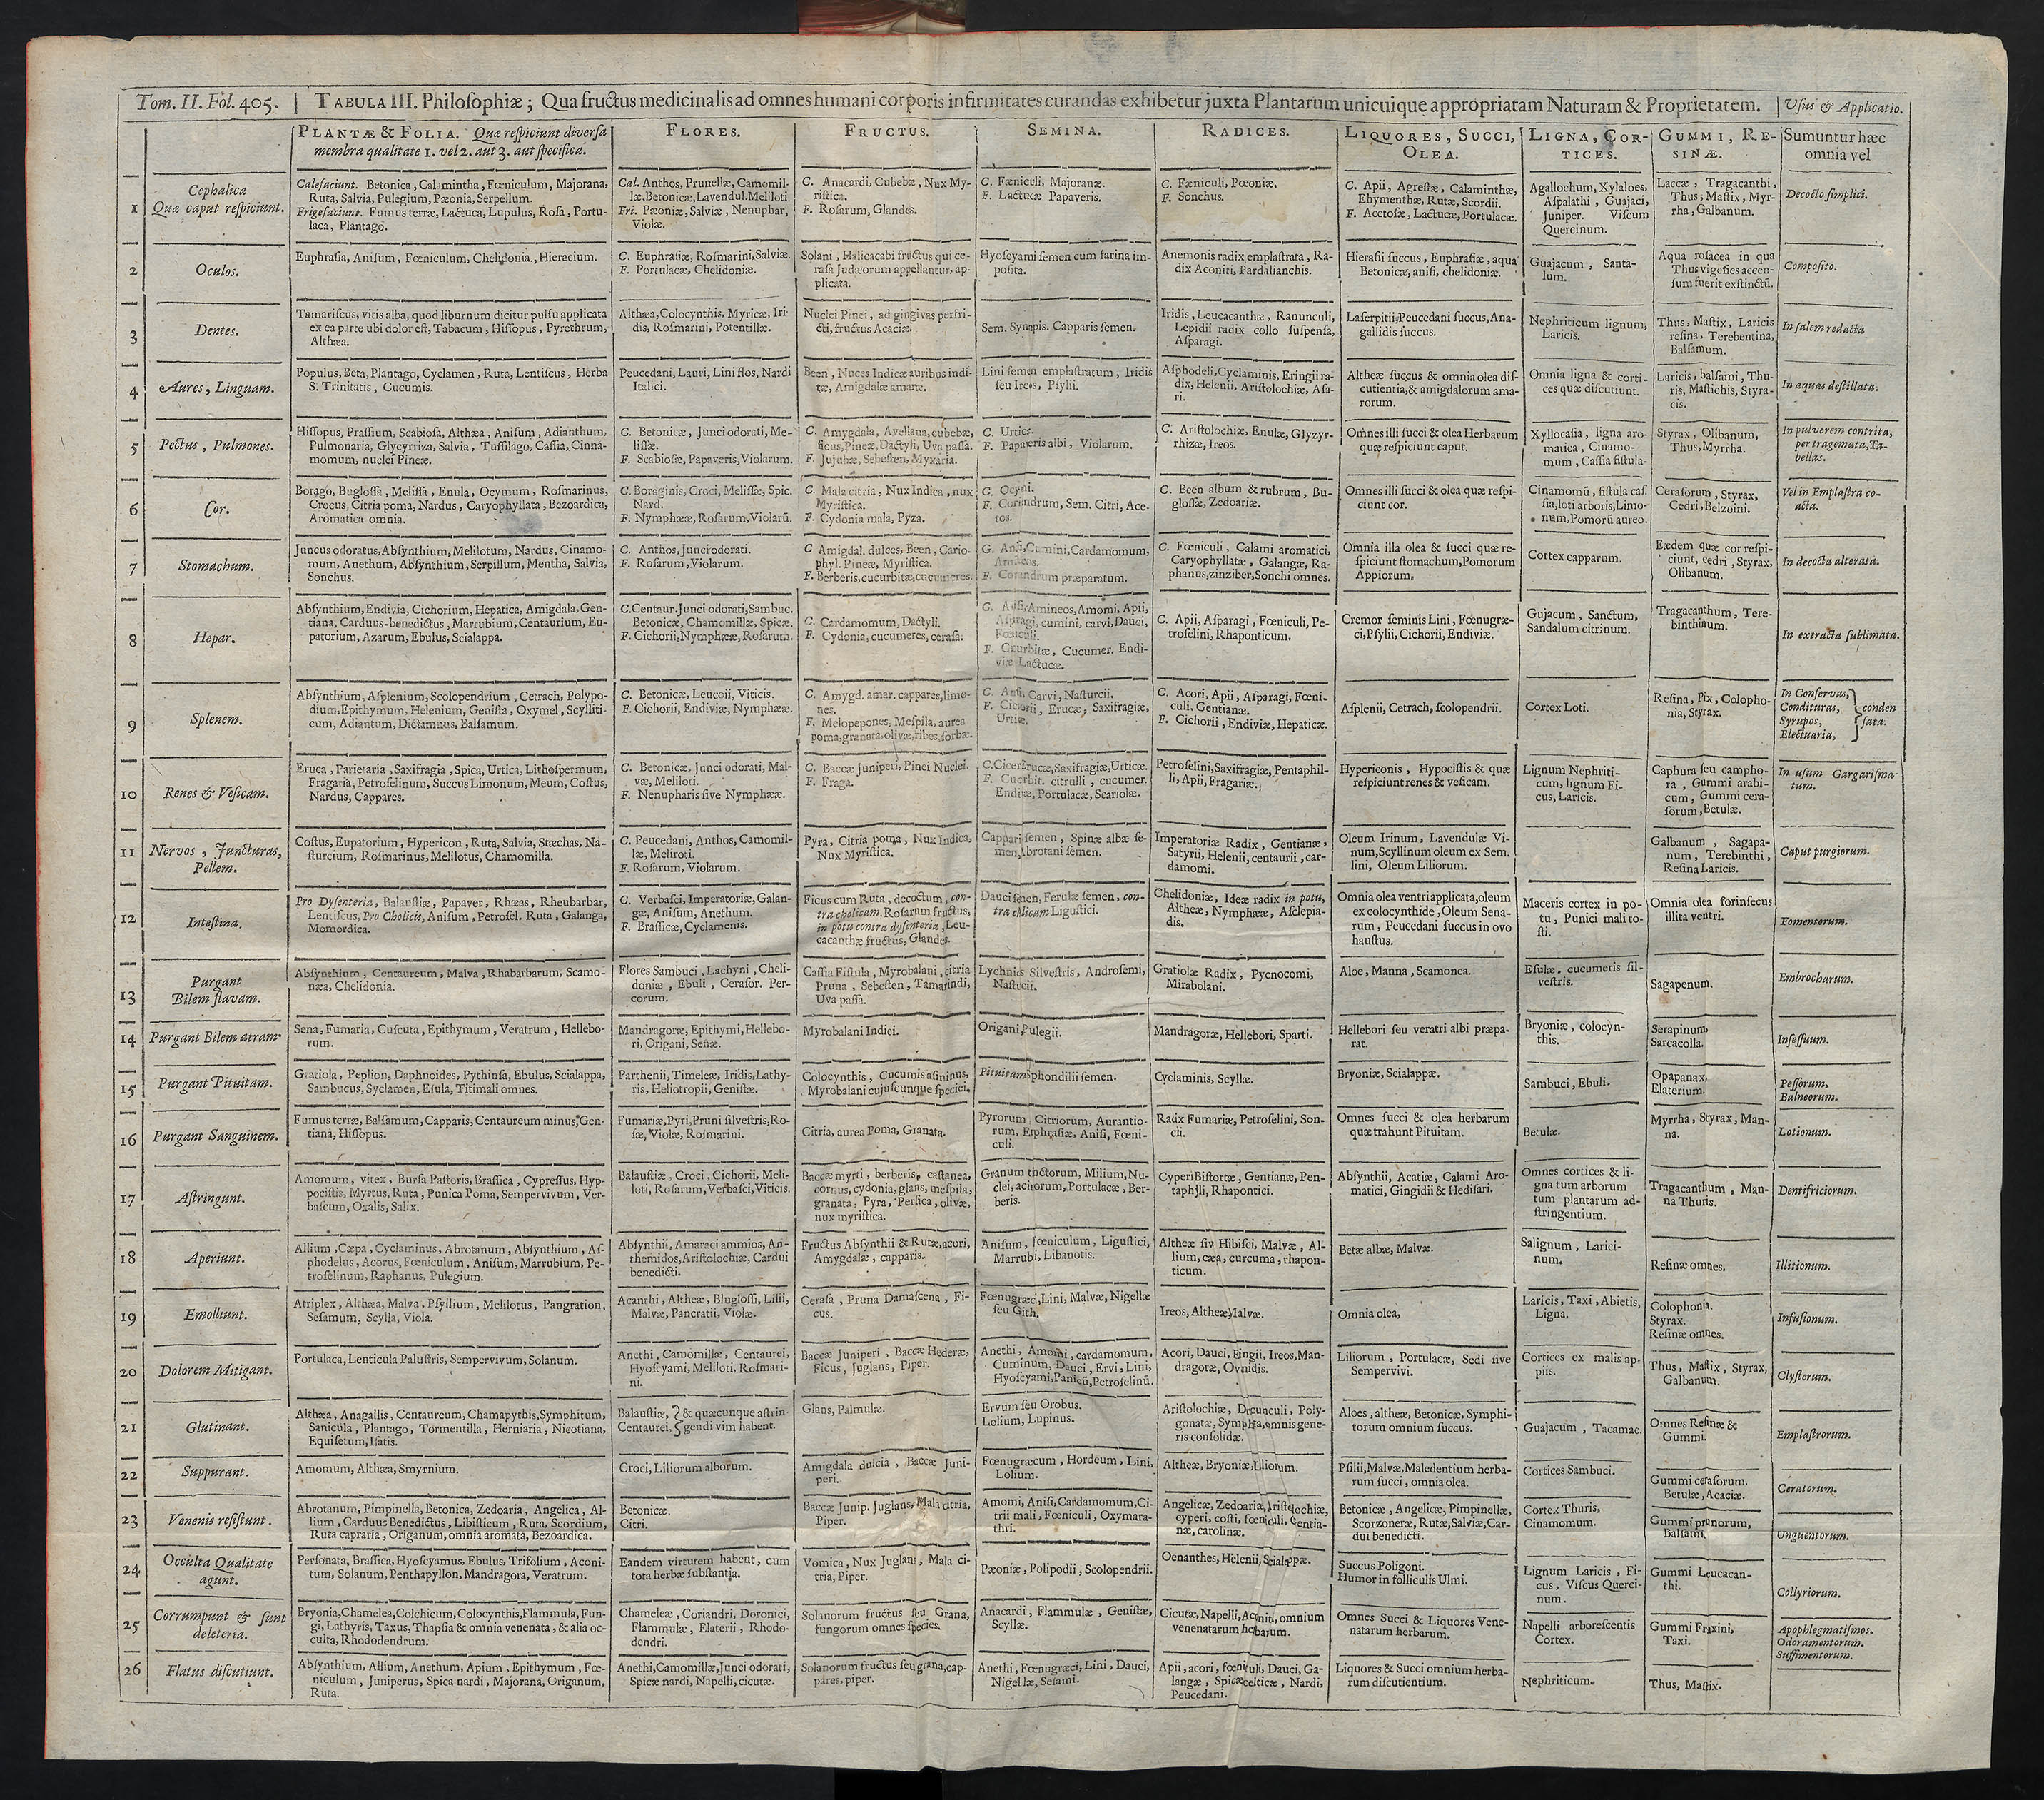 Tom. II. Fol. 405.
TABULA III. Philoſophiæ; Qua fructus medicinalis ad omnes humani corporis infirmitates curandas exhibetur juxta Plantarum unicuique appropriatam Naturam & Proprietatem.
Uſus & Applicatio.
PLANTÆ & FOLIA. Quæ reſpiciunt diverſa
membra qualitate 1. vel 2. aut 3. aut ſpecifica.
FLORES.
FRUCTUS.
SEMINA.
RADICES.
LIQUORES, SUCCI,
OLEA.
LIGNA, COR-
TICES.
GUMMI, RE-
SINÆ.
Sumuntur hæc
omnia vel
1
Cephalica
Quæ caput reſpiciunt.
Calefaciunt. Betonica, Calamintha, Fœniculum, Majorana,
Ruta, Salvia, Pulegium, Pæonia, Serpellum.
Frigefaciunt. Fumus terræ, Lactuca, Lupulus, Roſa, Portu-
laca, Plantago.
Cal. Anthos, Prunellæ, Camomil-
læ, Betonicæ, Lavendul. Meliloti.
Fri. Pæoniæ, Salviæ, Nenuphar,
Violæ.
C. Anacardi, Cubebæ, Nux My-
riſtica.
F. Roſarum, Glandes.
C. Fæniculi, Majoranæ.
F. Lactucæ Papaveris.
C. Fæniculi, Pœoniæ.
F. Sonchus.
C. Apii, Agreſtæ, Calaminthæ,
Ehymenthæ, Rutæ, Scordii.
F. Acetoſæ, Lactucæ, Portulacæ.
Agallochum, Xylaloes,
Aſpalathi, Guajaci,
Juniper. Viſcum
Quercinum.
Laccæ, Tragacanthi,
Thus, Maſtix, Myr-
rha, Galbanum.
Decocto ſimplici.
2
Oculos.
Euphraſia, Aniſum, Fœniculum, Chelidonia, Hieracium.
C. Euphraſiæ, Roſmarini, Salviæ.
F. Portulacæ, Chelidoniæ.
Solani, Halicacabi fructus qui ce-
raſa Judæorum appellantur, ap-
plicata.
Hyoſcyami ſemen cum farina im-
poſita.
Anemonis radix emplaſtrata, Ra-
dix Aconiti, Pardalianchis.
Hieraſii ſuccus, Euphraſiæ, aqua
Betonicæ, aniſi, chelidoniæ.
Guajacum, Santa-
lum.
Aqua roſacea in qua
Thus vigeſies accen-
ſum fuerit exſtinctū.
Compoſito.
3
Dentes.
Tamariſcus, vitis alba, quod liburnum dicitur pulſu applicata
ex ea parte ubi dolor eſt, Tabacum, Hiſſopus, Pyrethrum,
Althæa.
Althæa, Colocynthis, Myricæ, Iri-
dis, Roſmarini, Potentillæ.
Nuclei Pinei, ad gingivas perfri-
cti, fructus Acaciæ.
Sem. Synapis. Capparis ſemen.
Iridis, Leucacanthæ, Ranunculi,
Lepidii radix collo ſuſpenſa,
Aſparagi.
Laſerpitii, Peucedani ſuccus, Ana-
gallidis ſuccus.
Nephriticum lignum,
Laricis.
Thus, Maſtix, Laricis
reſina, Terebentina,
Balſamum.
In ſalem redacta
4
Aures, Linguam.
Populus, Beta, Plantago, Cyclamen, Ruta, Lentiſcus, Herba
S. Trinitatis, Cucumis.
Peucedani, Lauri, Lini flos, Nardi
Italici.
Been, Nuces Indicæ auribus indi-
tæ, Amigdalæ amaræ.
Lini ſemen emplaſtratum, Iridis
ſeu Ireos, Pſylii.
Aſphodeli, Cyclaminis, Eringii ra-
dix, Helenii, Ariſtolochiæ, Aſa-
ri.
Altheæ ſuccus & omnia olea diſ-
cutientia, & amigdalorum ama-
rorum.
Omnia ligna & corti-
ces quæ diſcutiunt.
Laricis, balſami, Thu-
ris, Maſtichis, Styra-
cis.
In aquas deſtillata.
5
Pectus, Pulmones.
Hiſſopus, Praſſium, Scabioſa, Althæa, Aniſum, Adianthum,
Pulmonaria, Glycyrriza, Salvia, Tuſſilago, Caſſia, Cinna-
momum, nuclei Pineæ.
C. Betonicæ, Junci odorati, Me-
liſſæ.
F. Scabioſæ, Papaveris, Violarum.
C. Amygdala, Avellana, cubebæ,
ficus, Pineæ, Dactyli, Uva paſſa.
F. Jujubæ, Sebeſten, Myxaria.
C. Urticæ.
F. Papaveris albi, Violarum.
C. Ariſtolochiæ, Enulæ, Glyzyr-
rhizæ, Ireos.
Omnes illi ſucci & olea Herbarum
quæ reſpiciunt caput.
Xyllocaſia, ligna aro-
matica, Cinamo-
mum, Caſſia fiſtula.
Styrax, Olibanum,
Thus, Myrrha.
In pulverem contrita,
per tragemata, Ta-
bellas.
6
Cor.
Borago, Bugloſſa, Meliſſa, Enula, Ocymum, Roſmarinus,
Crocus, Citria poma, Nardus, Caryophyllata, Bezoardica,
Aromatica omnia.
C. Boraginis, Croci, Meliſſæ, Spic.
Nard.
F. Nymphææ, Roſarum, Violarū.
C. Mala citria, Nux Indica, nux
Myriſtica.
F. Cydonia mala, Pyza.
C. Ocymi.
F. Coriandrum, Sem. Citri, Ace-
tos.
C. Been album & rubrum, Bu-
gloſſæ, Zedoariæ.
Omnes illi ſucci & olea quæ reſpi-
ciunt cor.
Cinamomū, fiſtula caſ
ſia, loti arboris, Limo-
num, Pomorū aureo.
Ceraſorum, Styrax,
Cedri, Belzoini.
Vel in Emplaſtra co-
acta.
7
Stomachum.
Juncus odoratus, Abſynthium, Melilotum, Nardus, Cinamo-
mum, Anethum, Abſynthium, Serpillum, Mentha, Salvia,
Sonchus.
C. Anthos, Junci odorati.
F. Roſarum, Violarum.
C Amigdal. dulces, Been, Cario-
phyl. Pineæ, Myriſtica.
F. Berberis, cucurbitæ, cucumeres.
G. Aniſi, Cumini, Cardamomum,
Amineos.
F. Coriandrum præparatum.
C. Fœniculi, Calami aromatici,
Caryophyllatæ, Galangæ, Ra-
phanus, zinziber, Sonchi omnes.
Omnia illa olea & ſucci quæ re-
ſpiciunt ſtomachum, Pomorum
Appiorum,
Cortex capparum.
Eædem quæ cor reſpi-
ciunt, cedri, Styrax,
Olibanum.
In decocta alterata.
8
Hepar.
Abſynthium, Endivia, Cichorium, Hepatica, Amigdala, Gen-
tiana, Carduus-benedictus, Marrubium, Centaurium, Eu-
patorium, Azarum, Ebulus, Scialappa.
C. Centaur. Junci odorati, Sambuc.
Betonicæ, Chamomillæ, Spicæ.
F. Cichorii, Nymphææ, Roſarum.
C. Cardamomum, Dactyli.
F. Cydonia, cucumeres, ceraſa.
C. Aniſi, Amineos, Amomi, Apii,
Aſparagi, cumini, carvi, Dauci,
Fœniculi.
F. Cucurbitæ, Cucumer. Endi-
viæ Lactucæ.
C. Apii, Aſparagi, Fœniculi, Pe-
troſelini, Rhaponticum.
Cremor ſeminis Lini, Fœnugræ-
ci, Pſylii, Cichorii, Endiviæ.
Gujacum, Sanctum,
Sandalum citrinum.
Tragacanthum, Tere-
binthinum.
In extracta ſublimata.
9
Splenem.
Abſynthium, Aſplenium, Scolopendrium, Cetrach, Polypo-
dium, Epithymum, Helenium, Geniſta, Oxymel, Scylliti-
cum, Adiantum, Dictamnus, Balſamum.
C. Betonicæ, Leucoii, Viticis.
F. Cichorii, Endiviæ, Nymphææ.
C. Amygd. amar. cappares, limo-
nes.
F. Melopepones, Meſpila, aurea
poma, granata, olivæ, ribes, ſorbæ.
C. Aniſi, Carvi, Naſturcii.
F. Cichorii, Erucæ, Saxifragiæ,
Urticæ.
C. Acori, Apii, Aſparagi, Fœni-
culi. Gentianæ.
F. Cichorii, Endiviæ, Hepaticæ.
Aſplenii, Cetrach, ſcolopendrii.
Cortex Loti.
Reſina, Pix, Colopho-
nia, Styrax.
In Conſervas,
Condituras,
Syrupos,
Electuaria,
conden
ſata.
10
Renes & Veſicam.
Eruca, Parietaria, Saxifragia, Spica, Urtica, Lithoſpermum,
Fragaria, Petroſelinum, Succus Limonum, Meum, Coſtus,
Nardus, Cappares.
C. Betonicæ, Junci odorati, Mal-
væ, Meliloti.
F. Nenupharis ſive Nymphææ.
C. Baccæ Juniperi, Pinei Nuclei.
F. Fraga.
C. Cicer Erucæ, Saxifragiæ, Urticæ.
F. Cucurbit. citrulli, cucumer.
Endiviæ, Portulacæ, Scariolæ.
Petroſelini, Saxifragiæ, Pentaphil-
li, Apii, Fragariæ.
Hypericonis, Hypociſtis & quæ
reſpiciunt renes & veſicam.
Lignum Nephriti-
cum, lignum Fi-
cus, Laricis.
Caphura ſeu campho-
ra, Gummi arabi-
cum, Gummi cera-
ſorum, Betulæ.
In uſum Gargariſma-
tum.
11
Nervos, Juncturas,
Pellem.
Coſtus, Eupatorium, Hypericon, Ruta, Salvia, Stæchas, Na-
ſturcium, Roſmarinus, Melilotus, Chamomilla.
C. Peucedani, Anthos, Camomil-
læ, Meliroti.
F. Roſarum, Violarum.
Pyra, Citria poma, Nux Indica,
Nux Myriſtica.
Cappari ſemen, Spinæ albæ ſe-
men, Abrotani ſemen.
Imperatoriæ Radix, Gentianæ,
Satyrii, Helenii, centaurii, car-
damomi.
Oleum Irinum, Lavendulæ Vi-
num, Scyllinum oleum ex Sem.
lini, Oleum Liliorum.
Galbanum, Sagapa-
num, Terebinthi,
Reſina Laricis.
Caput purgiorum.
12
Inteſtina.
Pro Dyſenteria, Balauſtiæ, Papaver, Rhæas, Rheubarbar,
Lentiſcus, Pro Cholicis, Aniſum, Petroſel. Ruta, Galanga,
Momordica.
C. Verbaſci, Imperatoriæ, Galan-
gæ, Aniſum, Anethum.
F. Braſſicæ, Cyclamenis.
Ficus cum Ruta, decoctum, con-
tra cholicam. Roſarum fructus,
in potu contra dyſenteria, Leu-
cacanthæ fructus, Glandes.
Dauci ſemen, Ferulæ ſemen, con-
tra cholicam Liguſtici.
Chelidoniæ, Ideæ radix in potu,
Altheæ, Nymphææ, Aſclepia-
dis.
Omnia olea ventri applicata, oleum
ex colocynthide, Oleum Sena-
rum, Peucedani ſuccus in ovo
hauſtus.
Maceris cortex in po-
tu, Punici mali to-
ſti.
Omnia olea forinſecus
illita ventri.
Fomentorum.
13
Purgant
Bilem flavam.
Abſynthium, Centaureum, Malva, Rhabarbarum, Scamo-
næa, Chelidonia.
Flores Sambuci, Lachyni, Cheli-
doniæ, Ebuli, Ceraſor. Per-
corum.
Caſſia Fiſtula, Myrobalani, citria
Pruna, Sebeſten, Tamarindi,
Uva paſſa.
Lychnies Silveſtris, Androſemi,
Naſtucii.
Gratiolæ Radix, Pycnocomi,
Mirabolani.
Aloe, Manna, Scamonea.
Eſulæ, cucumeris ſil-
veſtris.
Sagapenum.
Embrocharum.
14
Purgant Bilem atram.
Sena, Fumaria, Cuſcuta, Epithymum, Veratrum, Hellebo-
rum.
Mandragoræ, Epithymi, Hellebo-
ri, Origani, Senæ.
Myrobalani Indici.
Origani, Pulegii.
Mandragoræ, Hellebori, Sparti.
Hellebori ſeu veratri albi præpa-
rat.
Bryoniæ, colocyn-
this.
Serapinum
Sarcacolla.
Inſeſſuum.
15
Purgant Pituitam.
Gratiola, Peplion, Daphnoides, Pythinſa, Ebulus, Scialappa,
Sambucus, Syclamen, Eſula, Titimali omnes.
Parthenii, Timeleæ, Iridis, Lathy-
ris, Heliotropii, Geniſtæ.
Colocynthis, Cucumis aſininus,
Myrobalani cujuſcunque ſpeciei.
Pituitam Sphondilii ſemen.
Cyclaminis, Scyllæ.
Bryoniæ, Scialappæ.
Sambuci, Ebuli.
Opapanax,
Elaterium.
Peſſorum.
Balneorum.
16
Purgant Sanguinem.
Fumus terræ, Balſamum, Capparis, Centaureum minus, Gen-
tiana, Hiſſopus.
Fumariæ, Pyri, Pruni ſilveſtris, Ro-
ſæ, Violæ, Roſmarini.
Citria, aurea Poma, Granata.
Pyrorum, Citriorum, Aurantio-
rum, Euphraſiæ, Aniſi, Fœni-
culi.
Radix Fumariæ, Petroſelini, Son-
cli.
Omnes ſucci & olea herbarum
quæ trahunt Pituitam.
Betulæ.
Myrrha, Styrax, Man-
na.
Lotionum.
17
Aſtringunt.
Amomum, vitex, Burſa Paſtoris, Braſſica, Cypreſſus, Hyp-
pociſtis, Myrtus, Ruta, Punica Poma, Sempervivum, Ver-
baſcum, Oxalis, Salix.
Balauſtiæ, Croci, Cichorii, Meli-
loti, Roſarum, Verbaſci, Viticis.
Baccæ myrti, berberis, caſtanea,
cornus, cydonia, glans, meſpila,
granata, Pyra, Perſica, olivæ,
nux myriſtica.
Granum tinctorum, Milium, Nu-
clei, acinorum, Portulacæ, Ber-
beris.
Cyperi Biſtortæ, Gentianæ, Pen-
taphyli, Rhapontici.
Abſynthii, Acatiæ, Calami Aro-
matici, Gingidii & Hediſari.
Omnes cortices & li-
gna tum arborum
tum plantarum ad-
ſtringentium.
Tragacanthum, Man-
na Thuris.
Dentifriciorum.
18
Aperiunt.
Allium, Cæpa, Cyclaminus, Abrotanum, Abſynthium, Aſ-
phodelus, Acorus, Fœniculum, Aniſum, Marrubium, Pe-
troſelinum, Raphanus, Pulegium.
Abſynthii, Amaraci ammios, An-
themidos, Ariſtolochiæ, Cardui
benedicti.
Fructus Abſynthii & Rutæ, acori,
Amygdalæ, capparis.
Aniſum, Fœniculum, Liguſtici,
Marrubi, Libanotis.
Altheæ ſiv Hibiſci, Malvæ, Al-
lium, cæa, curcuma, rhapon-
ticum.
Betæ albæ, Malvæ.
Salignum, Larici-
num.
Reſinæ omnes.
Illitionum.
19
Emolliunt.
Atriplex, Althæa, Malva, Pſyllium, Melilotus, Pangration,
Seſamum, Scylla, Viola.
Acanthi, Altheæ, Blugloſſi, Lilii,
Malvæ, Pancratii, Violæ.
Ceraſa, Pruna Damaſcena, Fi-
cus.
Fœnugræci, Lini, Malvæ, Nigellæ
ſeu Gith.
Ireos, Altheæ, Malvæ.
Omnia olea,
Laricis, Taxi, Abietis,
Ligna.
Colophonia.
Styrax.
Reſinæ omnes.
Infuſionum.
20
Dolorem Mitigant.
Portulaca, Lenticula Paluſtris, Sempervivum, Solanum.
Anethi, Camomillæ, Centaurei,
Hyoſcyami, Meliloti, Roſmari-
ni.
Baccæ Juniperi, Baccæ Hederæ,
Ficus, Juglans, Piper.
Anethi, Amomi, cardamomum,
Cuminum, Dauci, Ervi, Lini,
Hyoſcyami, Panicū, Petroſelinū.
Acori, Dauci, Eingii, Ireos, Man-
dragoræ,
Liliorum, Portulacæ, Sedi ſive
Sempervivi.
Cortices ex malis ap-
piis.
Thus, Maſtix, Styrax,
Galbanum.
Clyſterum.
21
Glutinant.
Althæa, Anagallis, Centaureum, Chamapythis, Symphitum,
Sanicula, Plantago, Tormentilla, Herniaria, Nicotiana,
Equiſetum, Iſatis.
Balauſtiæ, & quæcunque aſtrin
Centaurei, gendi vim habent.
Glans, Palmulæ.
Ervum ſeu Orobus.
Lolium, Lupinus.
Ariſtolochiæ, Dracunculi, Poly-
gonatæ, Symphita, omnis gene-
ris conſolidæ.
Aloes, altheæ, Betonicæ, Symphi-
torum omnium ſuccus.
Guajacum, Tacamac.
Omnes Reſinæ &
Gummi.
Emplaſtrorum.
22
Suppurant.
Amomum, Althæa, Smyrnium.
Croci, Liliorum alborum.
Amigdala dulcia, Baccæ Juni-
peri.
Fœnugræcum, Hordeum, Lini,
Lolium.
Altheæ, Bryoniæ, Liliorum.
Pſilii, Malvæ, Maledentium herba-
rum ſucci, omnia olea.
Cortices Sambuci.
Gummi ceraſorum.
Betulæ, Acaciæ.
Ceratorum.
23
Venenis reſiſtunt.
Abrotanum, Pimpinella, Betonica, Zedoaria, Angelica, Al-
lium, Carduus Benedictus, Libiſticum, Ruta, Scordium,
Ruta capraria, Origanum, omnia aromata, Bezoardica.
Betonicæ.
Citri.
Baccæ Junip. Juglans, Mala citria,
Piper.
Amomi, Aniſi, Cardamomum, Ci-
trii mali, Fœniculi, Oxymara-
thri.
Angelicæ, Zedoariæ, Ariſtolochiæ,
cyperi, coſti, fœniculi, Gentia-
næ, carolinæ.
Betonicæ, Angelicæ, Pimpinellæ,
Scorzoneræ, Rutæ, Salviæ, Car-
dui benedicti.
Cortex Thuris,
Cinamomum.
Gummi prunorum,
Balſami.
Unguentorum.
24
Occulta Qualitate
agunt.
Perſonata, Braſſica, Hyoſcyamus, Ebulus, Trifolium, Aconi-
tum, Solanum, Penthapyllon, Mandragora, Veratrum.
Eandem virtutem habent, cum
tota herbæ ſubſtantia.
Vomica, Nux Juglans, Mala ci-
tria, Piper.
Pæoniæ, Polipodii, Scolopendrii.
Oenanthes, Helenii, Scialappæ.
Succus Poligoni.
Humor in folliculis Ulmi.
Lignum Laricis, Fi-
cus, Viſcus Querci-
num.
Gummi Leucacan-
thi.
Collyriorum.
25
Corrumpunt & ſunt
deleteria.
Bryonia, Chamelea, Colchicum, Colocynthis, Flammula, Fun-
gi, Lathyris, Taxus, Thapſia & omnia venenata, & alia oc-
culta, Rhododendrum.
Chameleæ, Coriandri, Doronici,
Flammulæ, Elaterii, Rhodo-
dendri.
Solanorum fructus ſeu Grana,
fungorum omnes ſpecies.
Anacardi, Flammulæ, Geniſtæ,
Scyllæ.
Cicutæ, Napelli, Aconiti, omnium
venenatarum herbarum.
Omnes Succi & Liquores Vene-
natarum herbarum.
Napelli arboreſcentis
Cortex.
Gummi Fraxini,
Taxi.
Apophlegmatiſmos.
Odoramentorum.
Suffimentorum.
26
Flatus diſcutiunt.
Abſynthium, Allium, Anethum, Apium, Epithymum, Fœ-
niculum, Juniperus, Spica nardi, Majorana, Origanum,
Ruta.
Anethi, Camomillæ, Junci odorati,
Spicæ nardi, Napelli, cicutæ.
Solanorum fructus ſeu grana, cap-
pares, piper.
Anethi, Fœnugræci, Lini, Dauci,
Nigellæ, Seſami.
Apii, acori, fœniculi, Dauci, Ga-
langæ, Spicæ celticæ, Nardi,
Peucedani.
Liquores & Succi omnium herba-
rum diſcutientium.
Nephriticum.
Thus, Maſtix.